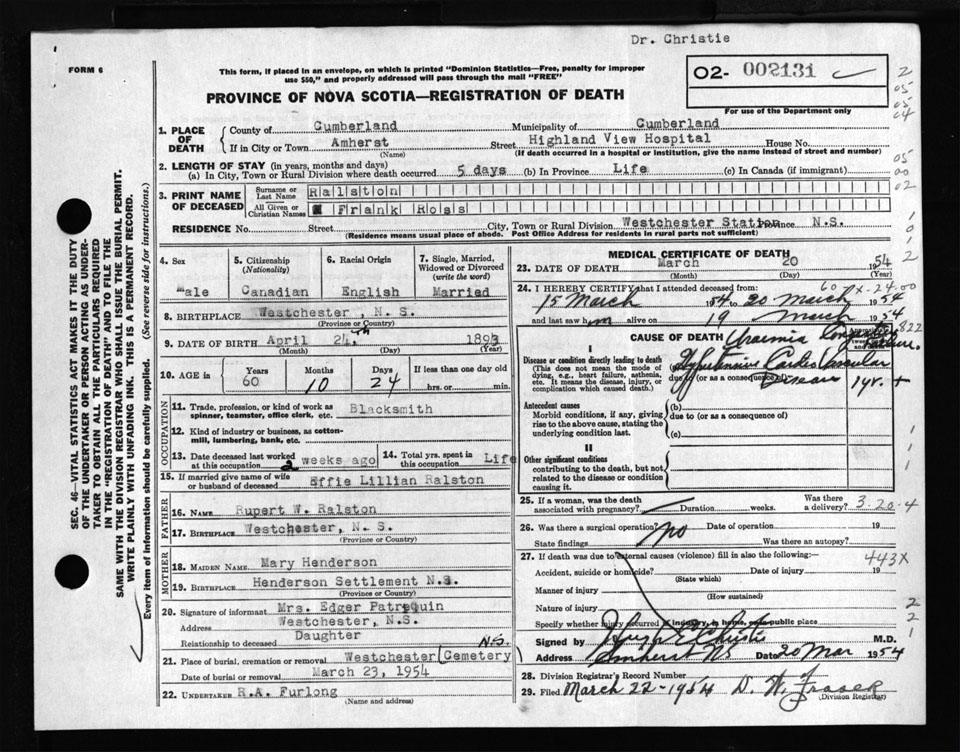 Dr. Christie
FORM 6
This form, if placed in an envelope, on which is printed "Dominion Statistics—Free, penalty for improper
use $50," and properly addressed will pass through the mail "FREE"
02- 002131
For use of the Department only
PROVINCE OF NOVA SCOTIA—REGISTRATION OF DEATH
1. PLACE OF DEATH
County of Cumberland Municipality of Cumberland
If in City or Town Amherst Street Highland View Hospital House No.
(Name) (If death occurred in a hospital or institution, give the name instead of street and number)
2. LENGTH OF STAY (in years, months and days)
(a) In City, Town or Rural Division where death occurred 5 days (b) In Province Life (c) In Canada (if immigrant)
3. PRINT NAME OF DECEASED
Surname or Last Name Ralston
All Given or Christian Names Frank Ross
RESIDENCE No. Street City, Town or Rural Division Westchester Station Province N.S.
(Residence means usual place of abode. Post Office Address for residents in rural parts not sufficient)
SEC. 46—VITAL STATISTICS ACT MAKES IT THE DUTY
OF THE UNDERTAKER OR PERSON ACTING AS UNDER-
TAKER TO OBTAIN ALL THE PARTICULARS REQUIRED
IN THE "REGISTRATION OF DEATH" AND TO FILE THE
SAME WITH THE DIVISION REGISTRAR WHO SHALL ISSUE THE BURIAL PERMIT.
WRITE PLAINLY WITH UNFADING INK. THIS IS A PERMANENT RECORD.
Every item of information should be carefully supplied. (See reverse side for instructions.)
4. Sex
Male
5. Citizenship
(Nationality)
Canadian
6. Racial Origin
English
7. Single, Married,
Widowed or Divorced
(write the word)
Married
8. BIRTHPLACE Westchester, N. S.
(Province or Country)
9. DATE OF BIRTH April 24th 1893
(Month) (Day) (Year)
10. AGE in
Years Months Days If less than one day old
60 10 24 hrs. or min.
OCCUPATION
11. Trade, profession, or kind of work as
spinner, teamster, office clerk, etc. Blacksmith
12. Kind of industry or business, as cotton-
mill, lumbering, bank, etc.
13. Date deceased last worked
at this occupation 2 weeks ago
14. Total yrs. spent in
this occupation Life
15. If married give name of wife
or husband of deceased Effie Lillian Ralston
FATHER
16. Name Rupert W. Ralston
17. Birthplace Westchester, N. S.
(Province or Country)
MOTHER
18. Maiden Name Mary Henderson
19. Birthplace Henderson Settlement N.S.
(Province or Country)
20. Signature of informant Mrs. Edger Patrequin
Address Westchester, N.S.
Relationship to deceased Daughter
21. Place of burial, cremation or removal Westchester (Cemetery) N.S.
Date of burial or removal March 23, 1954
22. Undertaker R.A. Furlong
(Name and address)
MEDICAL CERTIFICATE OF DEATH
23. DATE OF DEATH March 20 1954
(Month) (Day) (Year)
24. I HEREBY CERTIFY that I attended deceased from
15 March 1954 to 20 March 1954
and last saw him alive on 19 March 1954
CAUSE OF DEATH
I
Uraemia Congestive Failure.
Disease or condition directly leading to death
(This does not mean the mode of
dying, e.g., heart failure, asthenia,
etc. It means the disease, injury, or
complication which caused death.)
due to (or as a consequence of)
Hypertensive Cardio Vascular
Disease 1 yr. +
Antecedent causes
Morbid conditions, if any, giving
rise to the above cause, stating the
underlying condition last.
(b)
due to (or as a consequence of)
(c)
II
Other significant conditions
contributing to the death, but not
related to the disease or condition
causing it.
25. If a woman, was the death
associated with pregnancy? Duration weeks. Was there
a delivery?
3-20-4
26. Was there surgical operation? no Date of operation 19
State findings Was there an autopsy?
27. If death was due to external causes (violence) fill in also the following:
443X
Accident, suicide or homicide? Date of injury 19
(State which)
Manner of injury
(How sustained)
Nature of injury
Specify whether injury occurred in industry, in home, or in public place
Signed by Hugh E. Christie M.D.
Address Amherst NS Date 20 Mar 1954
28. Division Registrar's Record Number
29. Filed March 22-1954 D. W. Fraser
(Division Registrar)